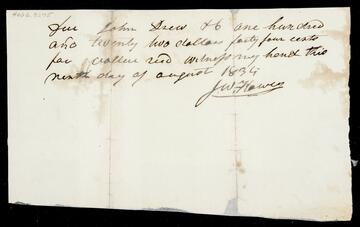 Due John Drew & Co one hundred
and twenty two dollars forty four cents
for value recd witness my hand this
ninth day of august 1834
J W Flowers